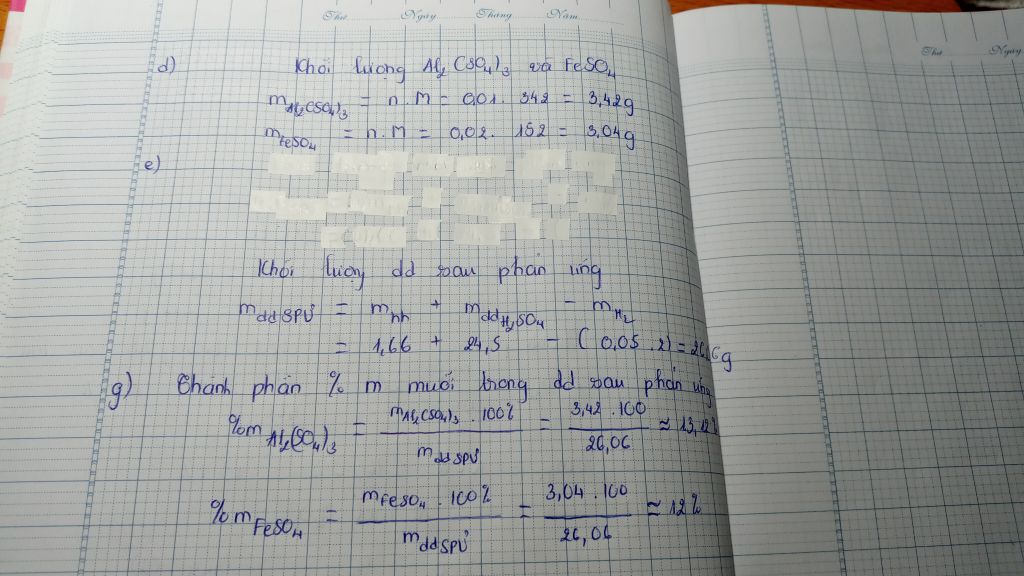 Thứ Ngày Tháng Năm
Thứ Ngày
d) Khối lượng Al₂(SO₄)₃ và FeSO₄
mAl₂(SO₄)₃ = n.M = 0,01. 342 = 3,42g
mFeSO₄ = n.M = 0,02. 152 = 3,04g
e)
Khối lượng dd sau phản ứng
mddSPƯ = mhh + mddH₂SO₄ - mH₂
= 1,66 + 24,5 - (0,05 .2) = g
g) Thành phần % m muối trong dd sau phản ứng
%mAl₂(SO₄)₃ = mAl₂(SO₄)₃ . 100% / mddSPƯ = 3,42 . 100 / 26,06 ≈ 13,12%
%mFeSO₄ = mFeSO₄ . 100% / mddSPƯ = 3,04 . 100 / 26,06 ≈ 12%